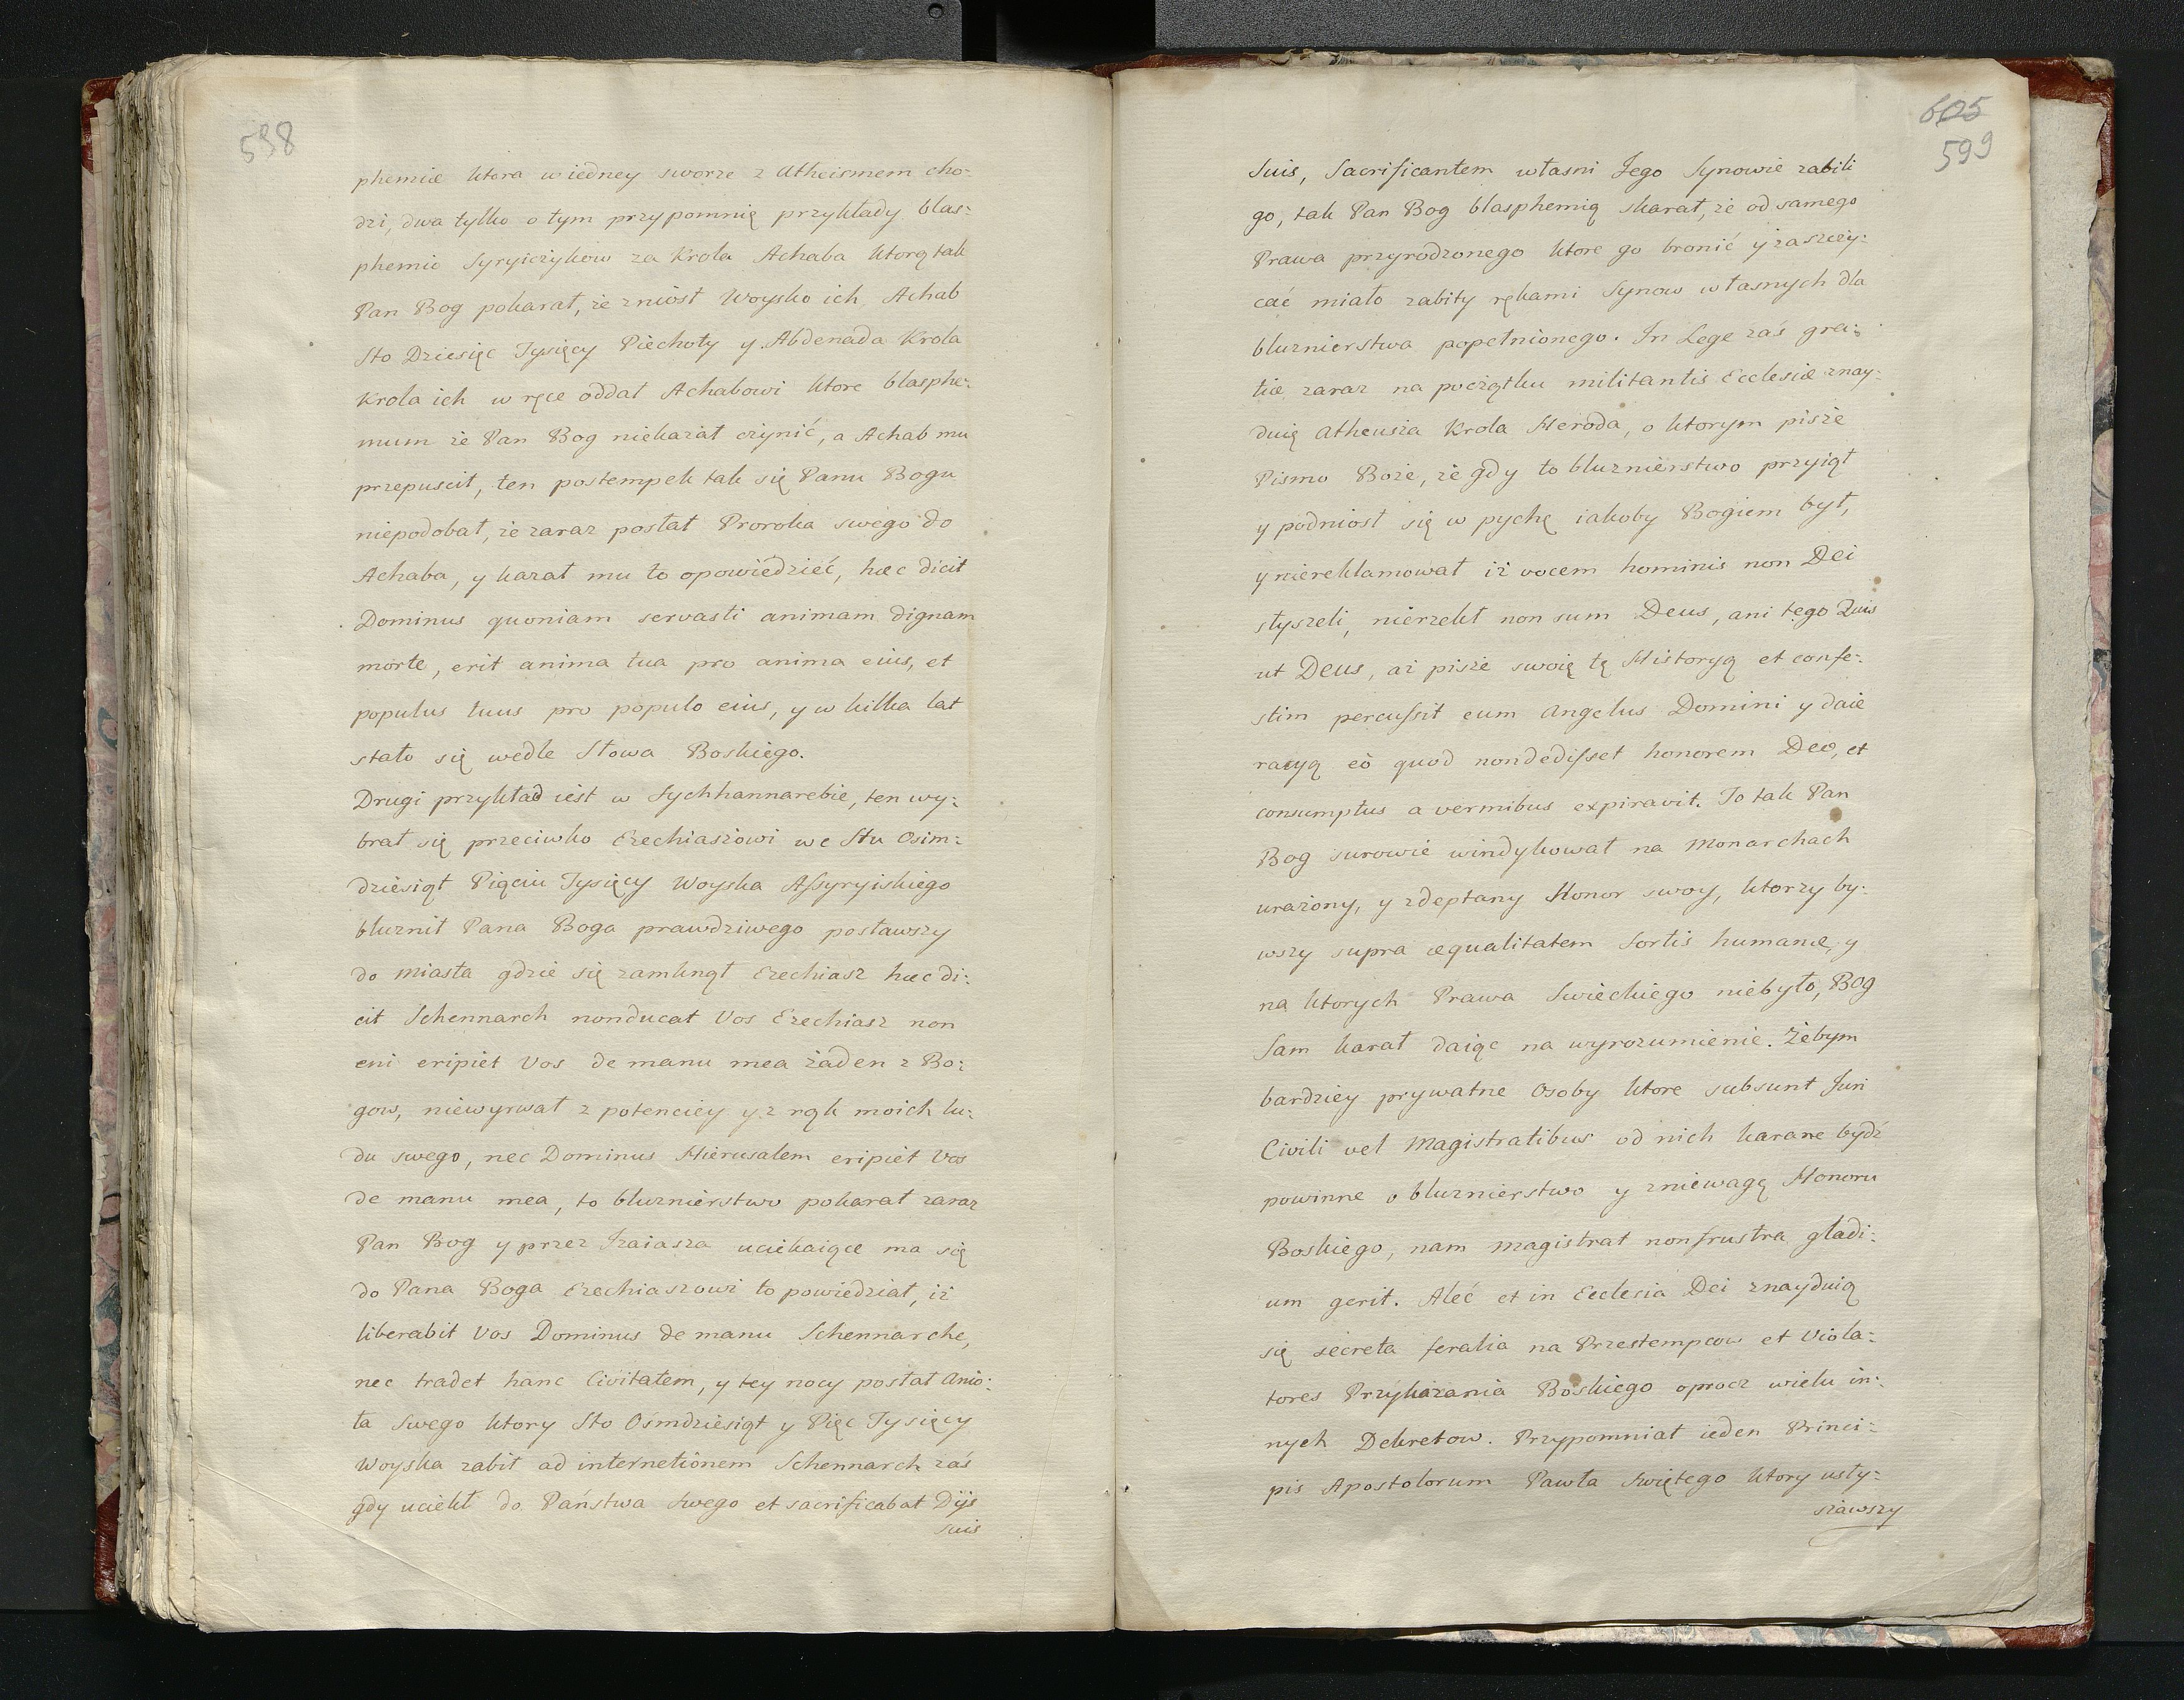 598
phemiæ ktora w iedney sworze z Atheismem cho:
dzi, dwa tylko o tym przypomnię przykłady blas:
phemio Syryiczykow za Krola Achaba ktorą tak
Pan Bog pokarał, że zniosł Woysko ich, Achab
Sto Dziesięc Tysięcy Piechoty y Abdenada Krola
Krola ich w ręce oddał Achabowi ktore blasphe:
mum że Pan Bog niekazał czynić, a Achab mu
przepuscił, ten postempek tak się Panu Bogu
niepodobał, że zaraz posłał Proroka swego do
Achaba, y kazał mu to opowiedzieć, hæc dicit
Dominus quoniam servasti animam dignam
morte, erit anima tua pro anima eius, et
populus tuus pro populo eius, y w kilka lat
stało się wedle Słowa Boskiego.
Drugi przykład iest w Sychhannarebie, ten wy:
brał się przeciwko Ezechiaszowi we Stu Osim:
dziesiąt Piąciu Tysięcy Woyska Assyryiskiego
bluznił Pana Boga prawdziwego posławszy
do miasta gdzie się zamknął Ezechiasz hæc di:
cit Schennarch nonducat Vos Ezechiasz non
eni eripiet Vos de manu mea żaden z Bo:
gow, niewyrwał z potenciey y z rąk moich lu:
du swego, nec Dominus Hierusalem eripiet Vos
de manu mea, to bluznierstwo pokarał zaraz
Pan Bog y przez Izaiasza uciekaiące ma się
do Pana Boga Ezechiaszowi to powiedział, iż
liberabit Vos Dominus de manu Schennarche,
nec tradet hanc Civitatem, y tey nocy posłał Anio:
ła Swego ktory Sto Ośmdziesiąt y Pięc Tysięcy
Woyska zabił ad internetionem Schennarch zaś
gdy uciekł do Państwa Swego et sacrificabat Dijs
suis
605
599
Suis, Sacrificantem własni Jego Synowie zabili
go, tak Pan Bog blasphemią skarał, że od samego
Prawa przyrodzonego ktore go bronić y zaszczy:
cać miało zabity rękami Synow własnych dla
bluznierstwa popełnionego. In Lege zaś gra:
tiæ zaraz na początku militantis Ecclesiæ znay:
duię Atheusza Krola Heroda, o ktorym pisze
Pismo Boże, że gdy to bluznierstwo przyiął
y podniosł się w pychę iakoby Bogiem był,
y niereklamował iż vocem hominis non Dei
słyszeli, nierzekł non sum Deus, ani tego
ut Deus, aż pisze swoię tę Historyą et confe:
stim percussit eum Angelus Domini y daie
racyą eò quod nondedisset honorem Deo, et
consumptus a vermibus expiravit. To tak Pan
Bog surowie windykował na Monarchach
urażony, y zdeptany Honor swoy, ktorzy by:
wszy supra æqualitatem Sortis humanæ, y
na ktorych Prawa Swieckiego niebyło, Bog
Sam karał daiąc na wyrozumienie. Żebym
bardziey prywatne Osoby ktore subsunt Juri
Civili vel Magistratibus od nich karane bydź
powinne o bluznierstwo y zniewagę Honoru
Boskiego, nam Magistrat nonfrustra gladi:
um gerit. Aleć et in Ecclesia Dei znayduią
się secreta feralia na Przestempcow et Viola:
tores Przykazania Boskiego oprocz wielu in:
nych Dekretow. Przypomniał ieden Princi:
pis Apostolorum Pawła Swiętego ktory usły:
szawszy